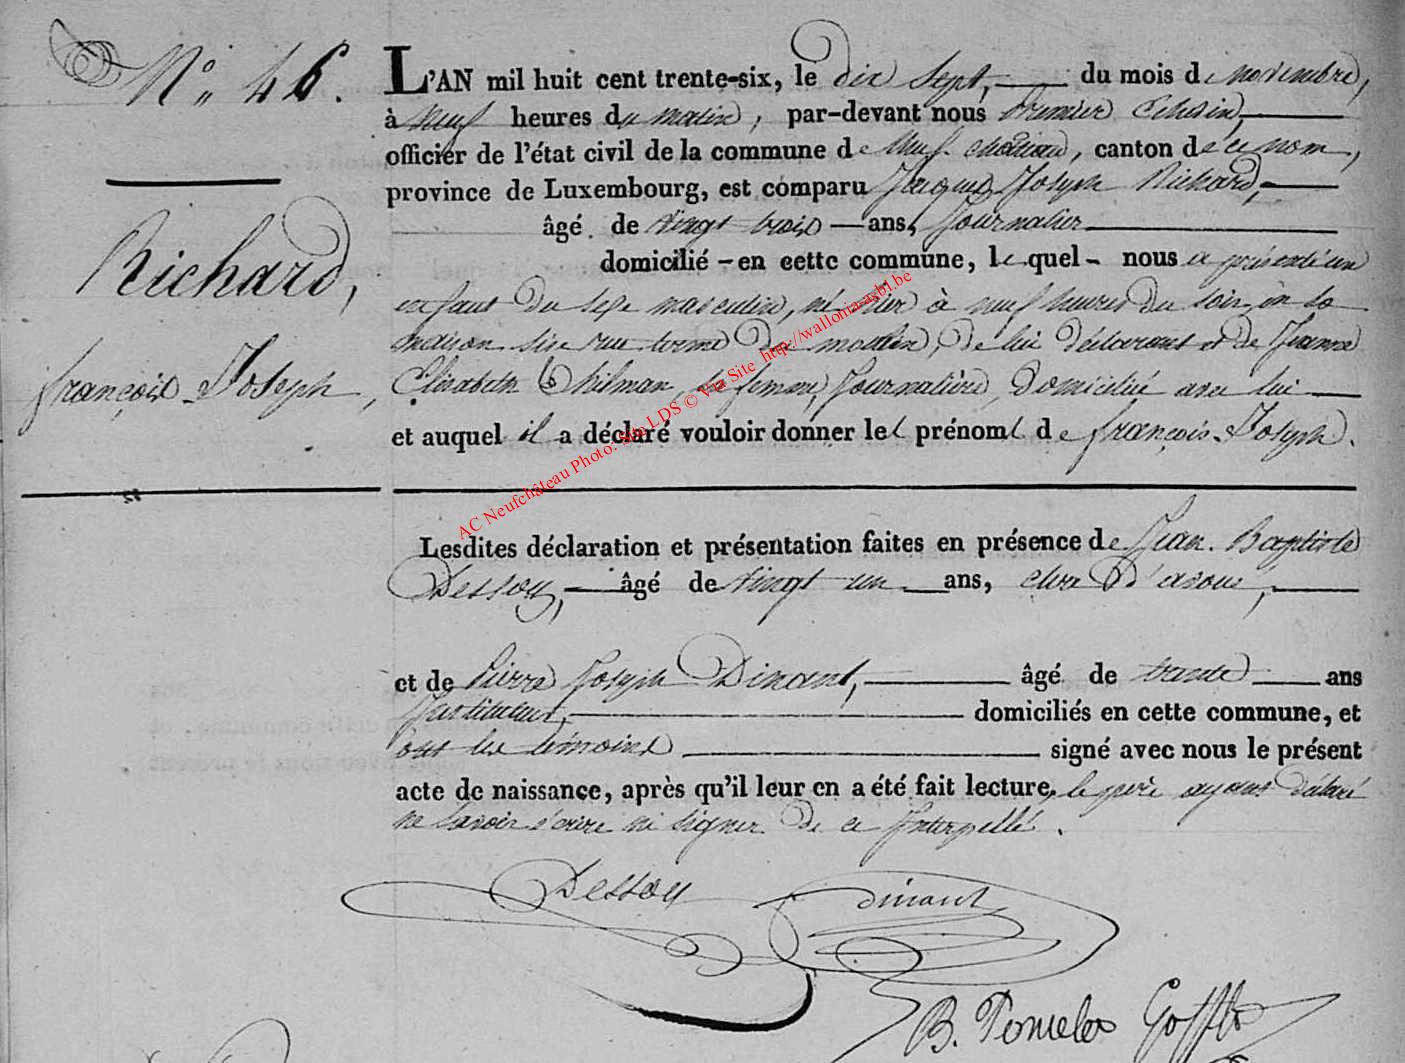 N° 46.
Richard,
françois Joseph,
L'AN mil huit cent trente-six, le dix sept, du mois de novembre,
à neuf heures du matin, par-devant nous Premier Echevin,
officier de l'état civil de la commune de Neufchâteau, canton de ce nom,
province de Luxembourg, est comparu Jacques Joseph Richard,
âgé de vingt trois ans, Journalier
domicilié en cette commune, lequel nous a présenté un
enfant du sexe masculin, né hier à neuf heures du soir, en sa
maison sise rue du moulin, de lui déclarant et de Jeanne
Elisabeth Thilman sa femme, Journalière, domiciliée avec lui
et auquel il a déclaré vouloir donner les prénoms de françois-Joseph.
Lesdites déclaration et présentation faites en présence de Jean-Baptiste
Dessoy, âgé de vingt un ans, clerc d'avoué,
et de Pierre Joseph Dinant, âgé de trente ans
Instituteur, domiciliés en cette commune, et
ont les témoins signé avec nous le présent
acte de naissance, après qu'il leur en a été fait lecture, le père ayant déclaré
ne savoir écrire ni signer de ce Interpellé.
Dessoy dinant
B.
AC Neufchâteau Photo: Site LDS © Via Site http://wallonia.asbl.be